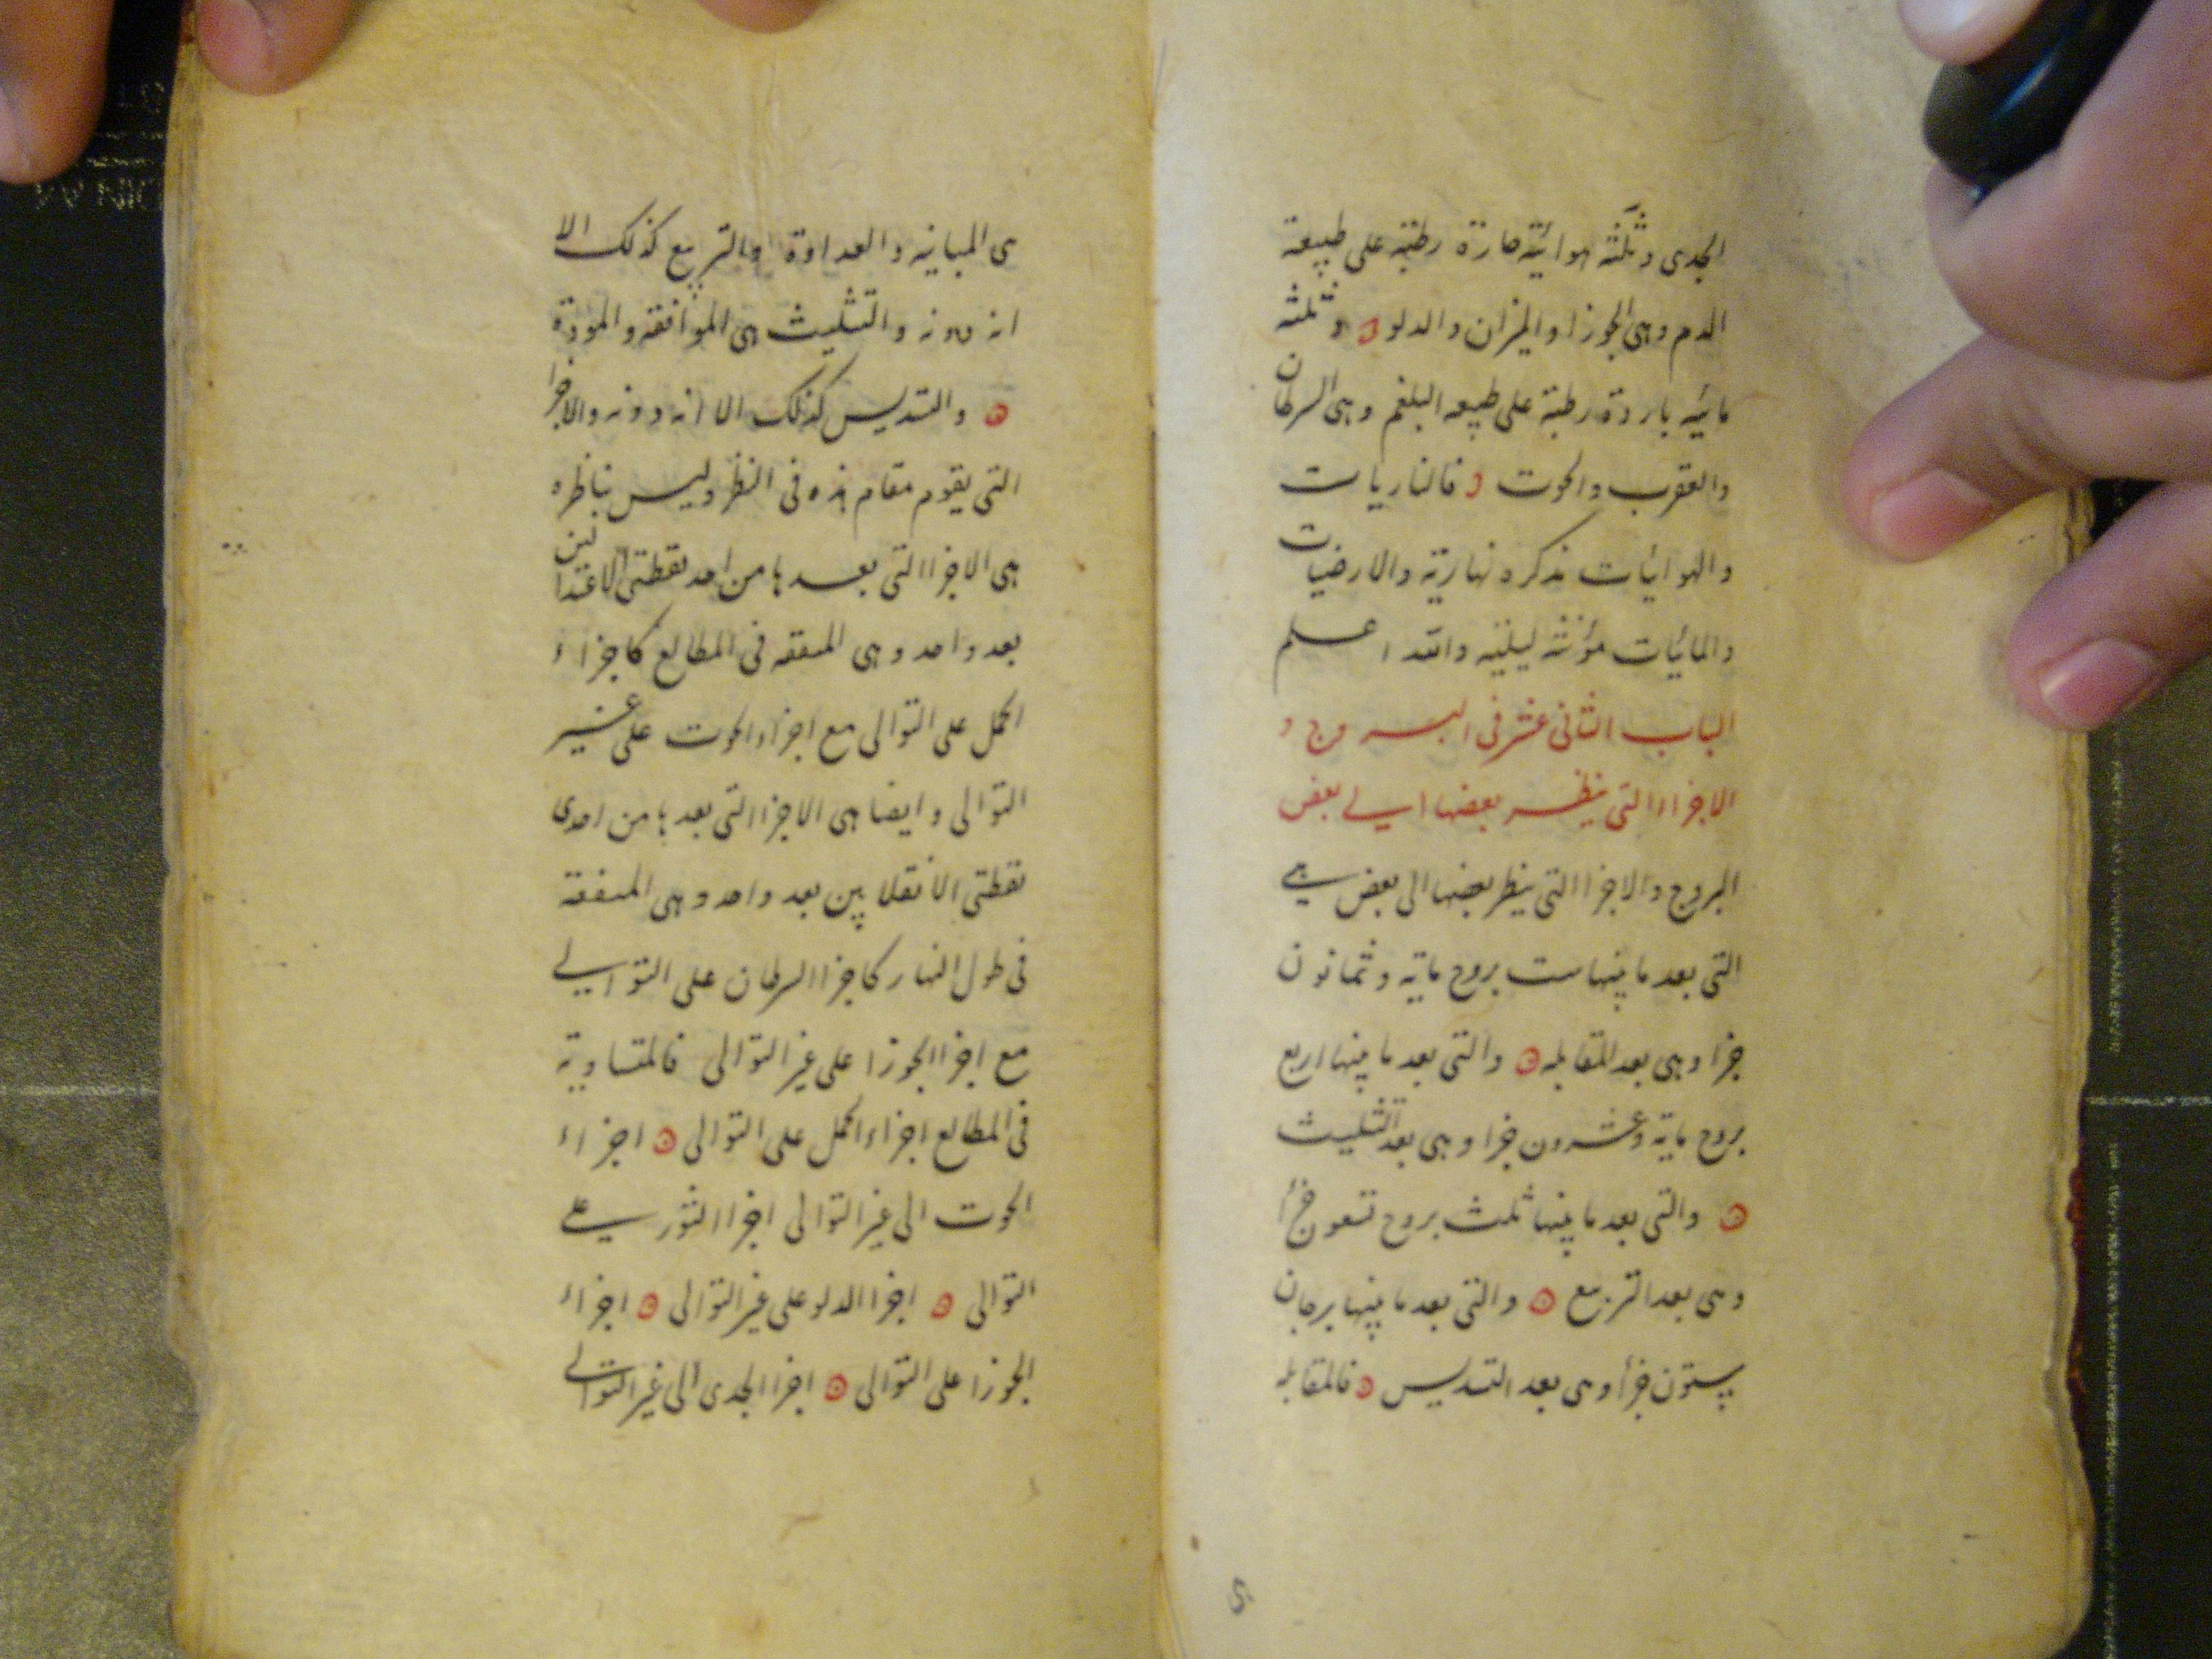 الجدى وثلثة هوائية حارة رطبة على طبيعة
الدم وهى الجوزا والميزان والدلو وثلثة
مائية باردة رطبة على طبيعه البلغم وهى السرطان
والعقرب والحوت فالناريات
والهوائيات مذكرة نهارية والارضيات
والمائيات مؤنثة ليلية والله اعلم
الباب الثانى عشر فى البروج و
الاجزاء التى ينظر بعضها الى بعض
البروج والاجزا التى ينظر بعضها الى بعض هى
التى بعد ما بينها ست بروج ماية وثمانون
جزا وهى بعد المقابله والتى بعد ما بينها اربع
بروج ماية وعشرون جزا وهى بعد التثليث
والتى بعد ما بينها ثلث بروج تسعون جزأ
وهى بعد التربيع والتى بعد ما بينها برجان
ستون جزأ وهى بعد التسديس فالمقابله
هى المباينه والعداوة والتربيع كذلك الا
انه دونه والتثليث هى الموافقة والمودة
والتسديس كذلك الا انه دونه والاجزا
التى يقوم مقام هذه فى النظر وليس بناظره
هى الاجزا التى بعدها من احد نقطتى الاعتدالين
بعد واحد وهى المتفقه فى المطالع كاجزاء
الحمل على التوالى مع اجزاء الحوت على غير
التوالى وايضا هى الاجزا التى بعدها من احدى
نقطتى الانقلابين بعد واحد وهى المتفقة
فى طول النهار كاجزا السرطان على التوالى
مع اجزا الجوزا على غير التوالى فالمتساوية
فى المطالع اجزاء الحمل على التوالى اجزاء
الحوت الى غير التوالى اجزا الثور على
التوالى اجزا الدلو على غير التوالى اجزاء
الجوزا على التوالى اجزا الجدى الى غير التوالى